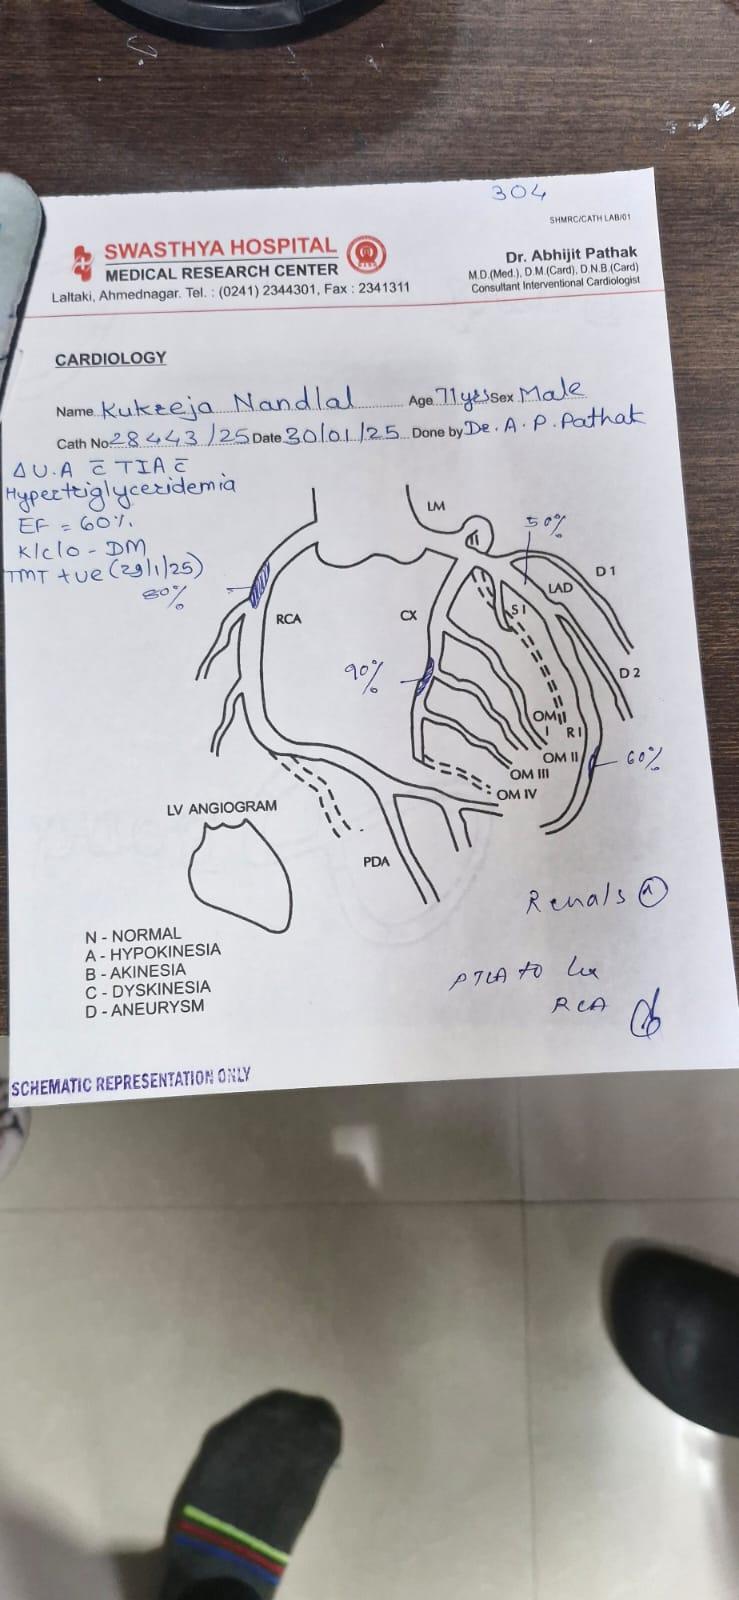 304
SHMRC/CATH LAB/01
SWASTHYA HOSPITAL
MEDICAL RESEARCH CENTER
Laltaki, Ahmednagar. Tel. : (0241) 2344301, Fax : 2341311
Dr. Abhijit Pathak
M.D.(Med.), D.M.(Card), D.N.B.(Card)
Consultant Interventional Cardiologist
CARDIOLOGY
Name Kukreja Nandlal Age 71yrs Sex Male
Cath No. 28443/25 Date 30/01/25 Done by Dr. A. P. Pathak
Δ U.A c̄ TIA c̄
Hypertriglyceridemia
EF = 60%.
K/c/o - DM
TMT +ve (29/1/25)
80%
LM
50%
D1
LAD
S1
RCA
CX
D2
90%
OM
I
RI
OM II
60%
OM III
OM IV
LV ANGIOGRAM
PDA
Renals N
N - NORMAL
A - HYPOKINESIA
B - AKINESIA
C - DYSKINESIA
D - ANEURYSM
PTCA to Cx
RCA
SCHEMATIC REPRESENTATION ONLY